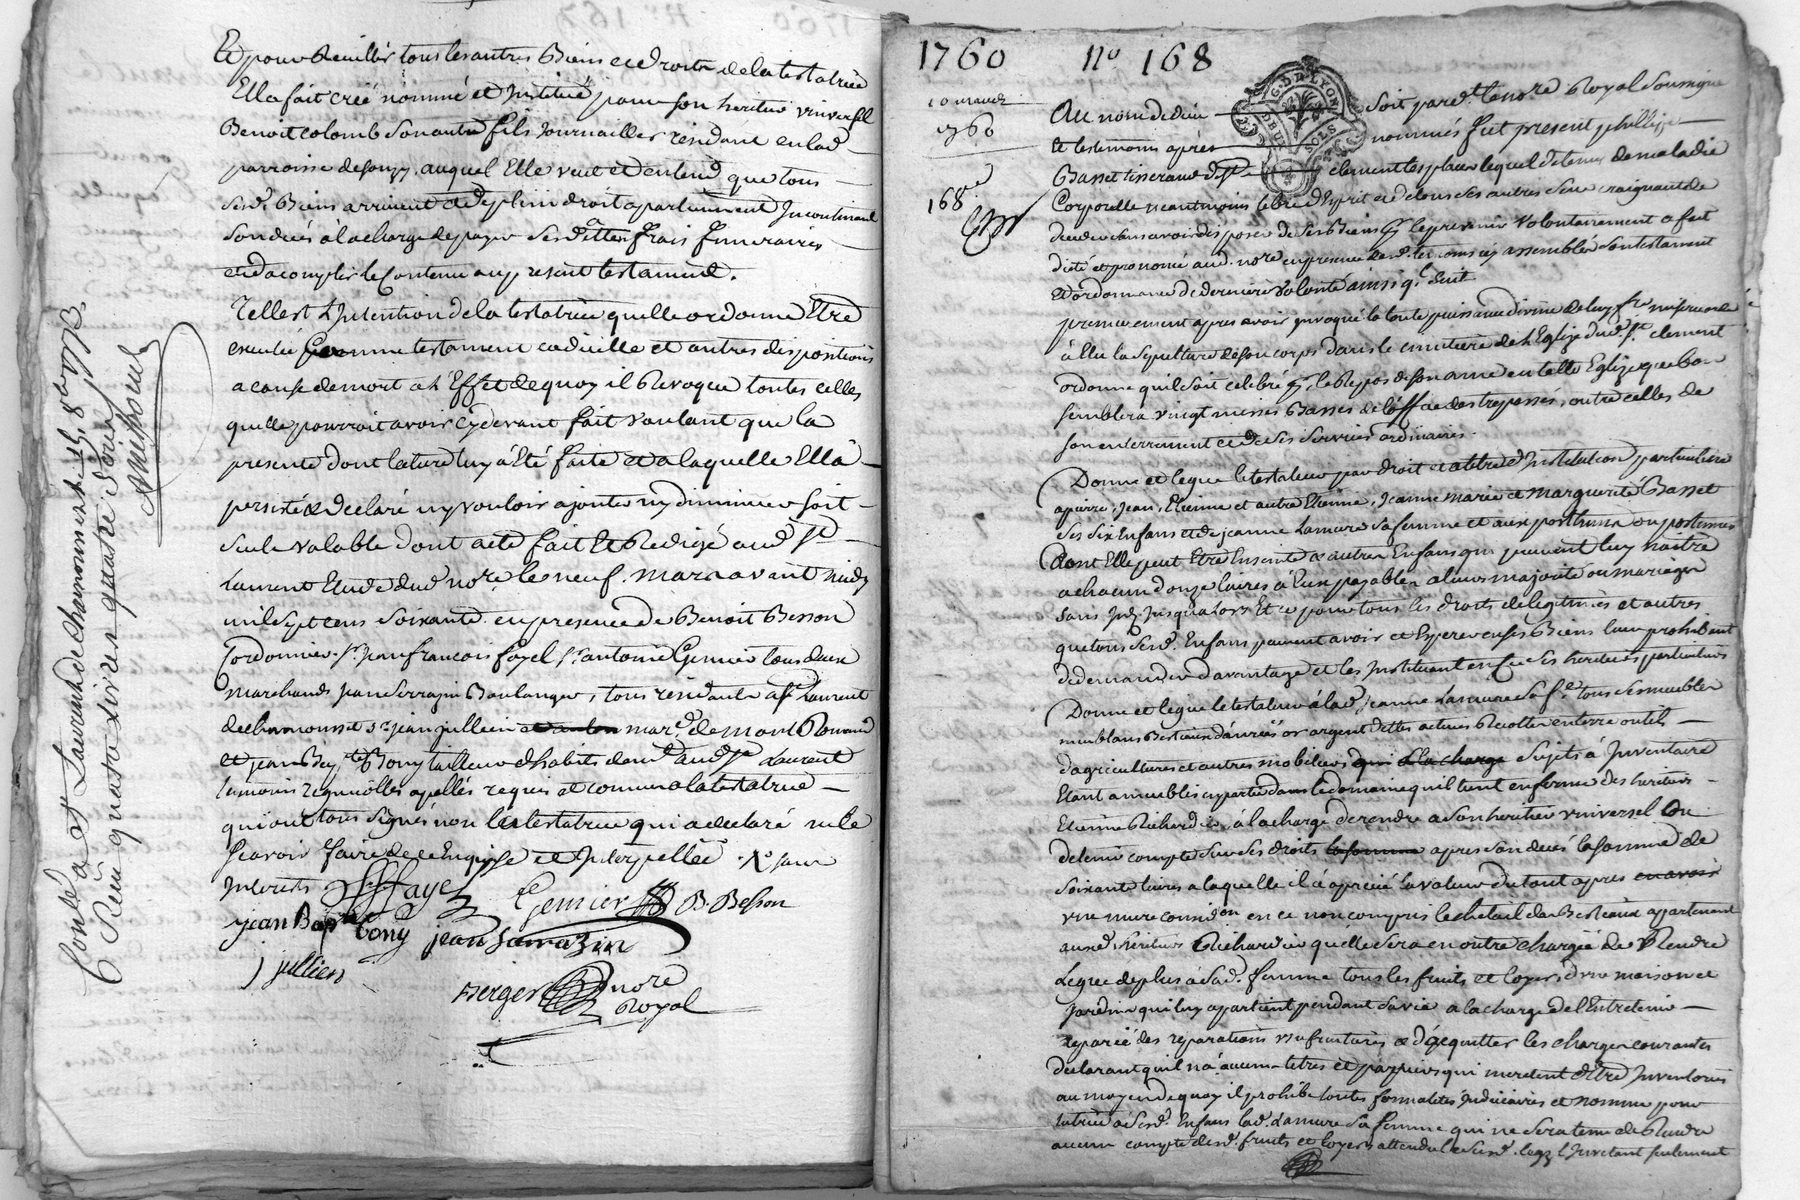 Et pour Recuillir tous les autres Biens et Droits de la testatrice
Ella fait créé nommé et Institué pour son heritier vniversel
Benoit Colomb son autre fils Journaillier résidant en lad.
parroisse de Souzy, auquel Elle veut et entend que tous
sesd. Biens arrivent et de plein droit apartiennent Incontinant
son décès à la charge de payer ses Dettes frais funeraires
et d'acomplir le Contenu au present testament.
Telle est L'Intention de la testatrice qu'elle ordonne Etre
executée Comme testament codicille et autres dispositions
a cause de mort à L'Effet de quoy il Revoque toutes celles
quelle pourroit avoir Cydevant fait voulant que la
presente dont lecture luy à Eté faite et a laquelle Ella
persisté & declaré n'y vouloir ajouter ny diminuer soit
seule valable dont acte fait Et Redigé aud. St
Laurent Etude dud. nore. le neuf mars avant midy
mil sept cens soixante en presence de Benoit Besson
Cordonnier, Sr. Jean francois fayel Sr. antoine Gemier tous deux
marchands Jean Serrazin Boulanger, tous résidants a St Laurent
de chamousset Sr. Jean Jullien mard. de mont Romand
et Jean Bapte. Bony tailleur d'habits dem. aud. St Laurent
temoins requis et connus a la testatrice
qui ont tous signés non la testatrice qui a declaré ne le
scavoir faire de ce Enquise et Interpellée
JF Fayel Gemier B. Besson
jean Bapte bony jean Sarrazin
J jullien
Berger nore
Royal
Conlé à St Laurent de chamousset le 15. 8bre 1773
Reçu quatre livres quatre sols
1760 No 168
10 mars
1760
168e
G. DE LYON
DEUX SOLS
Au nom de dieu soit pard. le nore Royal soussigné
et tesmoins après nommés fut present phillipe
Basset tisserand de St clement les places lequel detenu de maladie
Corporelle neantmoins libre d'Esprit et de tous ses autres sens craignant de
deceder sans avoir disposé de ses Biens pr. le prevenir volontairement a fait
dicté et prononcé aud. nore en presence desd. temoins icy assemblés son testament
et ordonnance de derniere volonté ainsi q. suit
premierement apres avoir invoqué la toute puissance divine
à Elu la sepulture de son corps dans le cimetière de L'Eglise dud. St. clement
ordonne qu'il soit celebré pr. le Repos de son ame en telle Eglise que bon
semblera vingt messes Basses de l'office des trepassés, outre celles de
son enterrement et de ses services ordinaires.
Donne et legue le testateur par droit et a titre d'Institution particuliere
a pierre, Jean, Etienne et autre Etienne, Jeanne marie et marguerite Basset
ses six Enfans et de jeanne Lamure sa femme et aux posthume ou postumes
dont Elle peut Etre Enceinte & autres Enfans qui peuvent luy naitre
a chacun douze livres à Eux payables a leurs majorité ou mariages
sans Intt. Jusqu'alors Et ce pour tous les droits de legitimes et autres
que tous sesd. Enfans peuvent avoir et Esperer en ses Biens leur prohibant
de demander d'avantage et les Instituant en ce ses heritiers particuliers
Donne et legue le testateur à lad. jeanne Lamure sa fe. tous ses meubles
meublans Bestiaux danrées or argent dettes actives Recoltes en terre outils
d'agricultures et autres mobiliers Sujets à Inventaire
Etant a meublés en partie dans le domaine qu'il tient en ferme des heritiers
Etienne Richard, a la charge de rendre a son heritier vniversel ou
de tenir compte sur ses droits la somme apres son decès la somme de
soixante livres a laquelle il à aprecié la valeur du tout apres
vne mure consideon. en ce non compris le chetail des Bestiaux appartenant
auxd. heritiers Richard qu'elle sera en outre chargée de Rendre
Legue de plus à sad. femme tous les fruits et loyers d'vne maison et
jardin qui luy apartient pendant sa vie a la charge de l'Entretenir
reparée des reparations vsufruitaires & d'acquitter les charges courantes
declarant qu'il n'a aucuns titres et papiers qui meritent d'Etre Inventoriés
au moyen de quoy il prohibe toutes formalités judiciaires et nomme pour
tutrice à sesd. Enfans lad. Lamure sa femme qui ne sera tenue de Rendre
aucun compte desd. fruits et loyers attendu le susd. legs l'Invitant seulement